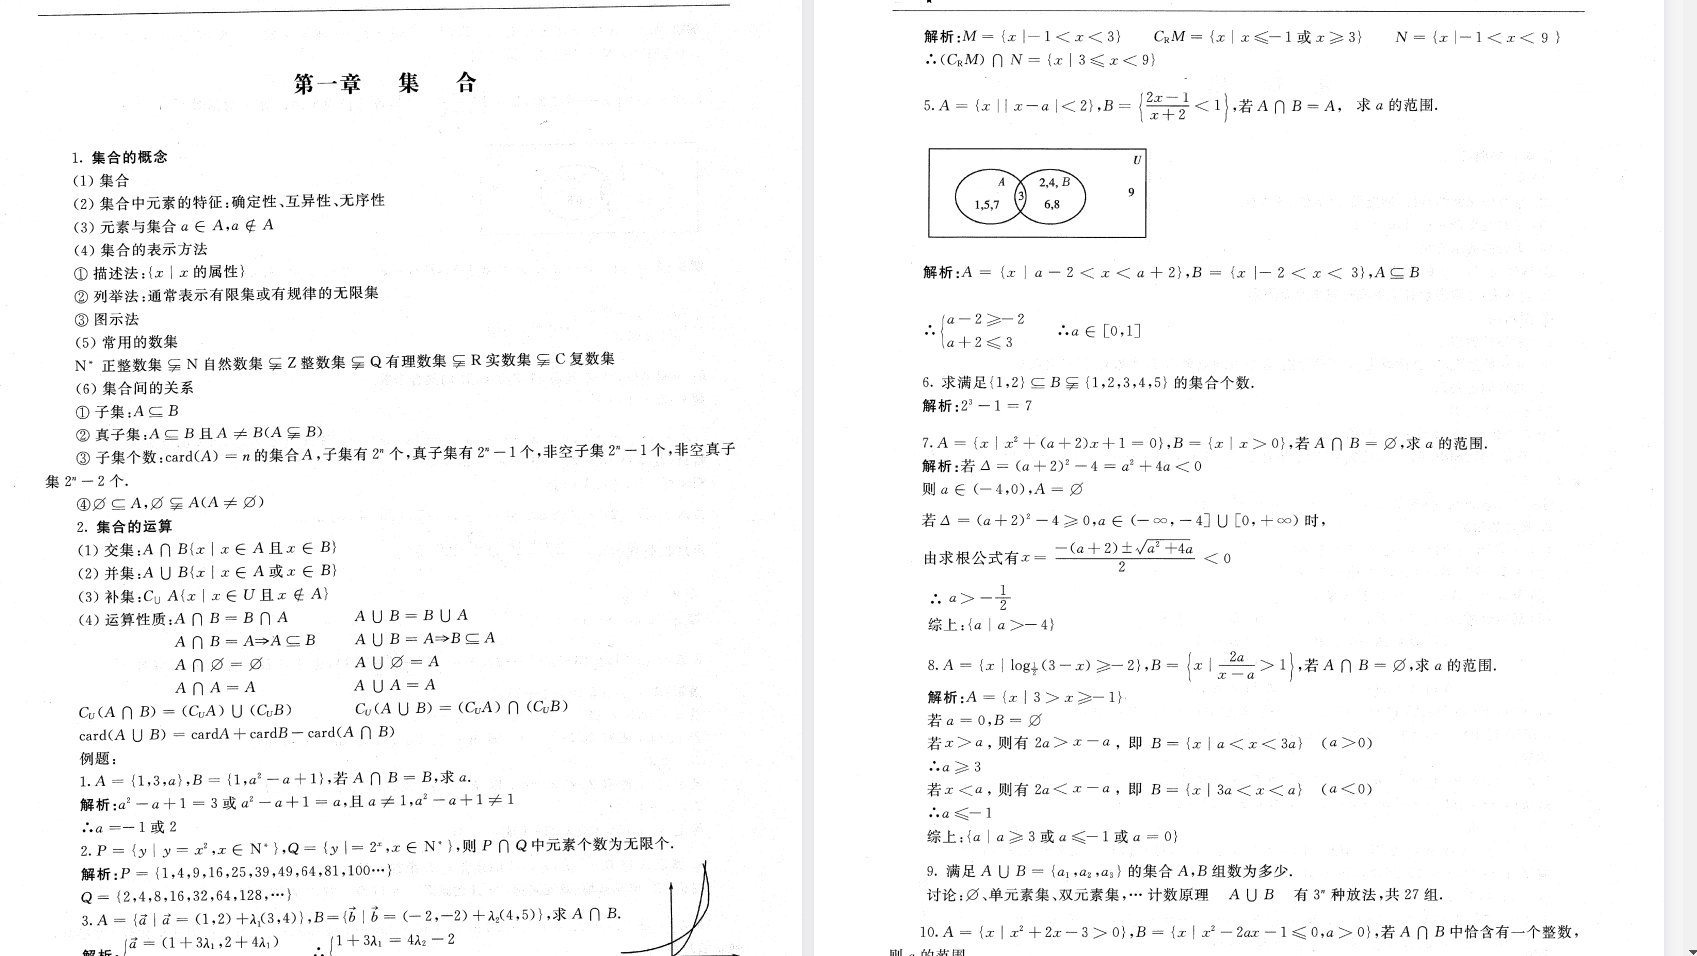 第一章 集 合
1. 集合的概念
(1) 集合
(2) 集合中元素的特征:确定性、互异性、无序性
(3) 元素与集合 a ∈ A,a ∉ A
(4) 集合的表示方法
① 描述法:{x | x 的属性}
② 列举法:通常表示有限集或有规律的无限集
③ 图示法
(5) 常用的数集
N* 正整数集 ⫋ N 自然数集 ⫋ Z 整数集 ⫋ Q 有理数集 ⫋ R 实数集 ⫋ C 复数集
(6) 集合间的关系
① 子集:A ⊆ B
② 真子集:A ⊆ B 且 A ≠ B(A ⫋ B)
③ 子集个数:card(A) = n 的集合 A,子集有 2ⁿ 个,真子集有 2ⁿ − 1 个,非空子集 2ⁿ − 1 个,非空真子
集 2ⁿ − 2 个.
④∅ ⊆ A,∅ ⫋ A(A ≠ ∅)
2. 集合的运算
(1) 交集:A ∩ B{x | x ∈ A 且 x ∈ B}
(2) 并集:A ∪ B{x | x ∈ A 或 x ∈ B}
(3) 补集:C_U A{x | x ∈ U 且 x ∉ A}
(4) 运算性质:A ∩ B = B ∩ A A ∪ B = B ∪ A
A ∩ B = A⇒A ⊆ B A ∪ B = A⇒B ⊆ A
A ∩ ∅ = ∅ A ∪ ∅ = A
A ∩ A = A A ∪ A = A
C_U(A ∩ B) = (C_U A) ∪ (C_U B) C_U(A ∪ B) = (C_U A) ∩ (C_U B)
card(A ∪ B) = cardA + cardB − card(A ∩ B)
例题:
1. A = {1,3,a},B = {1,a² − a + 1},若 A ∩ B = B,求 a.
解析:a² − a + 1 = 3 或 a² − a + 1 = a,且 a ≠ 1,a² − a + 1 ≠ 1
∴a = −1 或 2
2. P = {y | y = x²,x ∈ N*},Q = {y | = 2ˣ,x ∈ N*},则 P ∩ Q 中元素个数为无限个.
解析:P = {1,4,9,16,25,39,49,64,81,100…}
Q = {2,4,8,16,32,64,128,…}
3. A = {a⃗ | a⃗ = (1,2) + λ₁(3,4)},B = {b⃗ | b⃗ = (−2,−2) + λ₂(4,5)},求 A ∩ B.
解析:{a⃗ = (1 + 3λ₁,2 + 4λ₁) ∴{1 + 3λ₁ = 4λ₂ − 2
解析:M = {x |−1 < x < 3} C_R M = {x | x ⩽−1 或 x ⩾ 3} N = {x |−1 < x < 9 }
∴(C_R M) ∩ N = {x | 3 ⩽ x < 9}
5. A = {x || x − a |< 2},B = {(2x − 1)/(x + 2) < 1},若 A ∩ B = A, 求 a 的范围.
U
A 2,4, B 9
3
1,5,7 6,8
解析:A = {x | a − 2 < x < a + 2},B = {x |− 2 < x < 3},A ⊆ B
∴{a − 2 ⩾− 2
a + 2 ⩽ 3 ∴a ∈ [0,1]
6. 求满足{1,2} ⊆ B ⫋ {1,2,3,4,5} 的集合个数.
解析:2³ − 1 = 7
7. A = {x | x² + (a + 2)x + 1 = 0},B = {x | x > 0},若 A ∩ B = ∅,求 a 的范围.
解析:若 Δ = (a + 2)² − 4 = a² + 4a < 0
则 a ∈ (− 4,0),A = ∅
若 Δ = (a + 2)² − 4 ⩾ 0,a ∈ (− ∞,− 4] ∪ [0,+ ∞) 时,
由求根公式有 x = (−(a + 2) ± √(a² + 4a))/2 < 0
∴ a > −1/2
综上:{a | a >− 4}
8. A = {x | log_{1/2}(3 − x) ⩾− 2},B = {x | 2a/(x − a) > 1},若 A ∩ B = ∅,求 a 的范围.
解析:A = {x | 3 > x ⩾− 1}
若 a = 0,B = ∅
若 x > a ,则有 2a > x − a ,即 B = {x | a < x < 3a} (a > 0)
∴a ⩾ 3
若 x < a ,则有 2a < x − a ,即 B = {x | 3a < x < a} (a < 0)
∴a ⩽− 1
综上:{a | a ⩾ 3 或 a ⩽− 1 或 a = 0}
9. 满足 A ∪ B = {a₁,a₂,a₃} 的集合 A,B 组数为多少.
讨论:∅、单元素集、双元素集,… 计数原理 A ∪ B 有 3ⁿ 种放法,共 27 组.
10. A = {x | x² + 2x − 3 > 0},B = {x | x² − 2ax − 1 ⩽ 0,a > 0},若 A ∩ B 中恰含有一个整数,
则 a 的范围